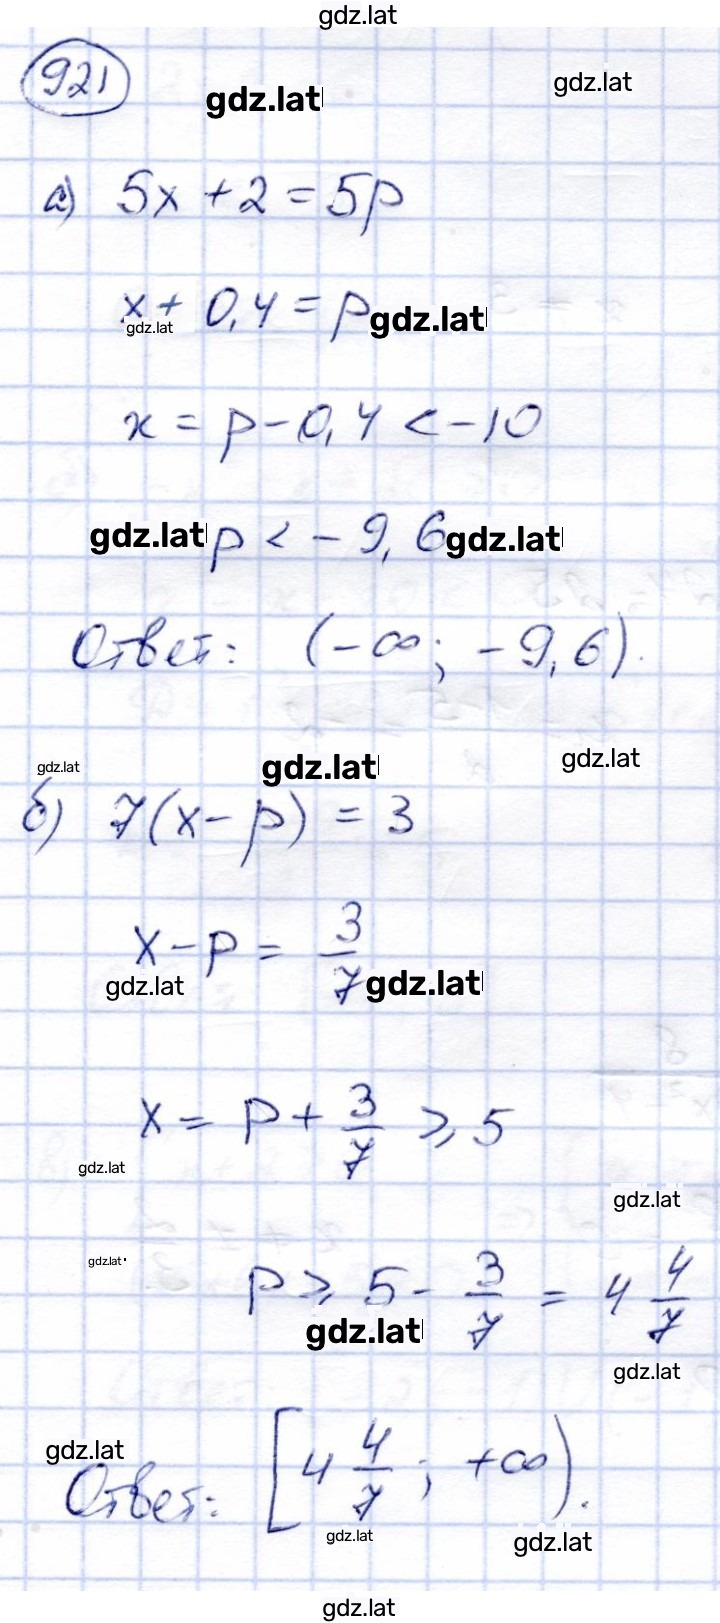 gdz.lat
921
gdz.lat
gdz.lat
а) 5x + 2 = 5p
x + 0,4 = p
gdz.lat
gdz.lat
x = p - 0,4 < -10
gdz.lat p < - 9,6 gdz.lat
Ответ: (-∞; -9,6).
gdz.lat
gdz.lat
gdz.lat
б) 7(x - p) = 3
x - p = 3/7
gdz.lat
gdz.lat
x = p + 3/7 ⩾ 5
gdz.lat
gdz.lat
gdz.lat
p ⩾ 5 - 3/7 = 4 4/7
gdz.lat
gdz.lat
gdz.lat
Ответ: [4 4/7; +∞).
gdz.lat
gdz.lat
gdz.lat